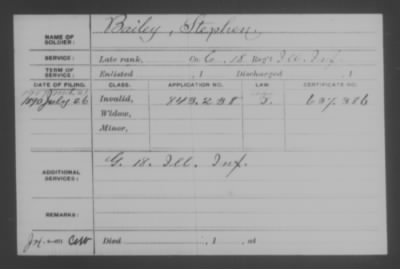 Bailey, Stephen,
NAME OF SOLDIER:
SERVICE: Late rank, Co. C, 18 Reg't Ill. Inf.
TERM OF SERVICE: Enlisted , 1 Discharged , 1
DATE OF FILING. CLASS. APPLICATION NO. LAW. CERTIFICATE NO.
1890 July 26 Invalid, 843.298 637.386
Widow,
Minor,
ADDITIONAL SERVICES: G. 18. Ill. Inf.
REMARKS:
Died , 1 , at